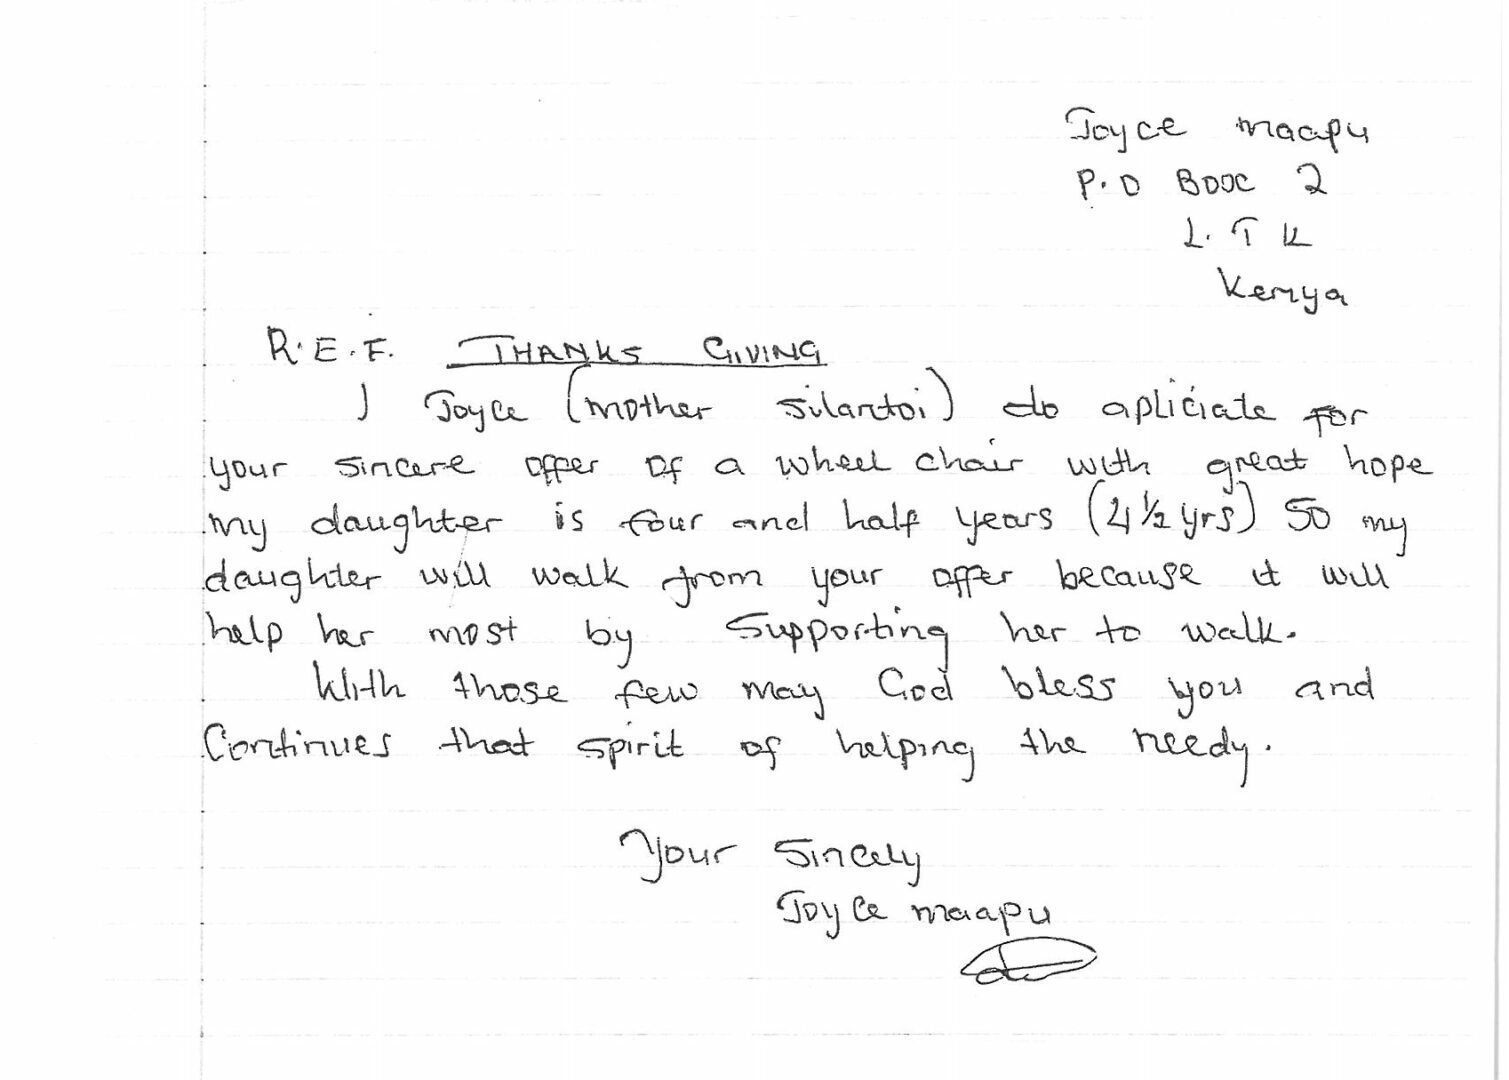 Joyce maapu
P.O Box 2
L.T K
Kenya
R.E.F. THANKS GIVING
I Joyce (mother silantoi) do apliciate for
your sincere offer of a wheel chair with great hope
my daughter is four and half years (4 ½ yrs) so my
daughter will walk from your offer because it will
help her most by supporting her to walk.
With those few may God bless you and
Continues that spirit of helping the needy.
Your Sincely
Joyce maapu